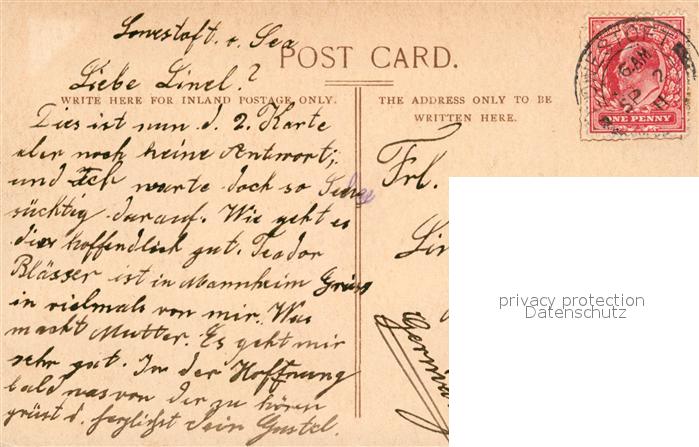 Lowestoft. o. Sea
POST CARD.
Liebe Linel.?
WRITE HERE FOR INLAND POSTAGE ONLY.
THE ADDRESS ONLY TO BE
WRITTEN HERE.
Dies ist nun d. 2. Karte
aber noch keine Antwort;
und Ich warte doch so Sehn
süchtig darauf. Wie geht es
dier hoffendlich gut. Teodor
Blässer ist in Mannheim Grüss
in vielmals von mir. Was
macht Mutter. Es geht mir
sehr gut. In der Hoffnung
bald was von der zu hören
grüst d. herzlichst dein Gustel.
Frl.
Lin
Germa
LOWESTOFT
6 AM
SP 2
11
ONE PENNY
privacy protection
Datenschutz